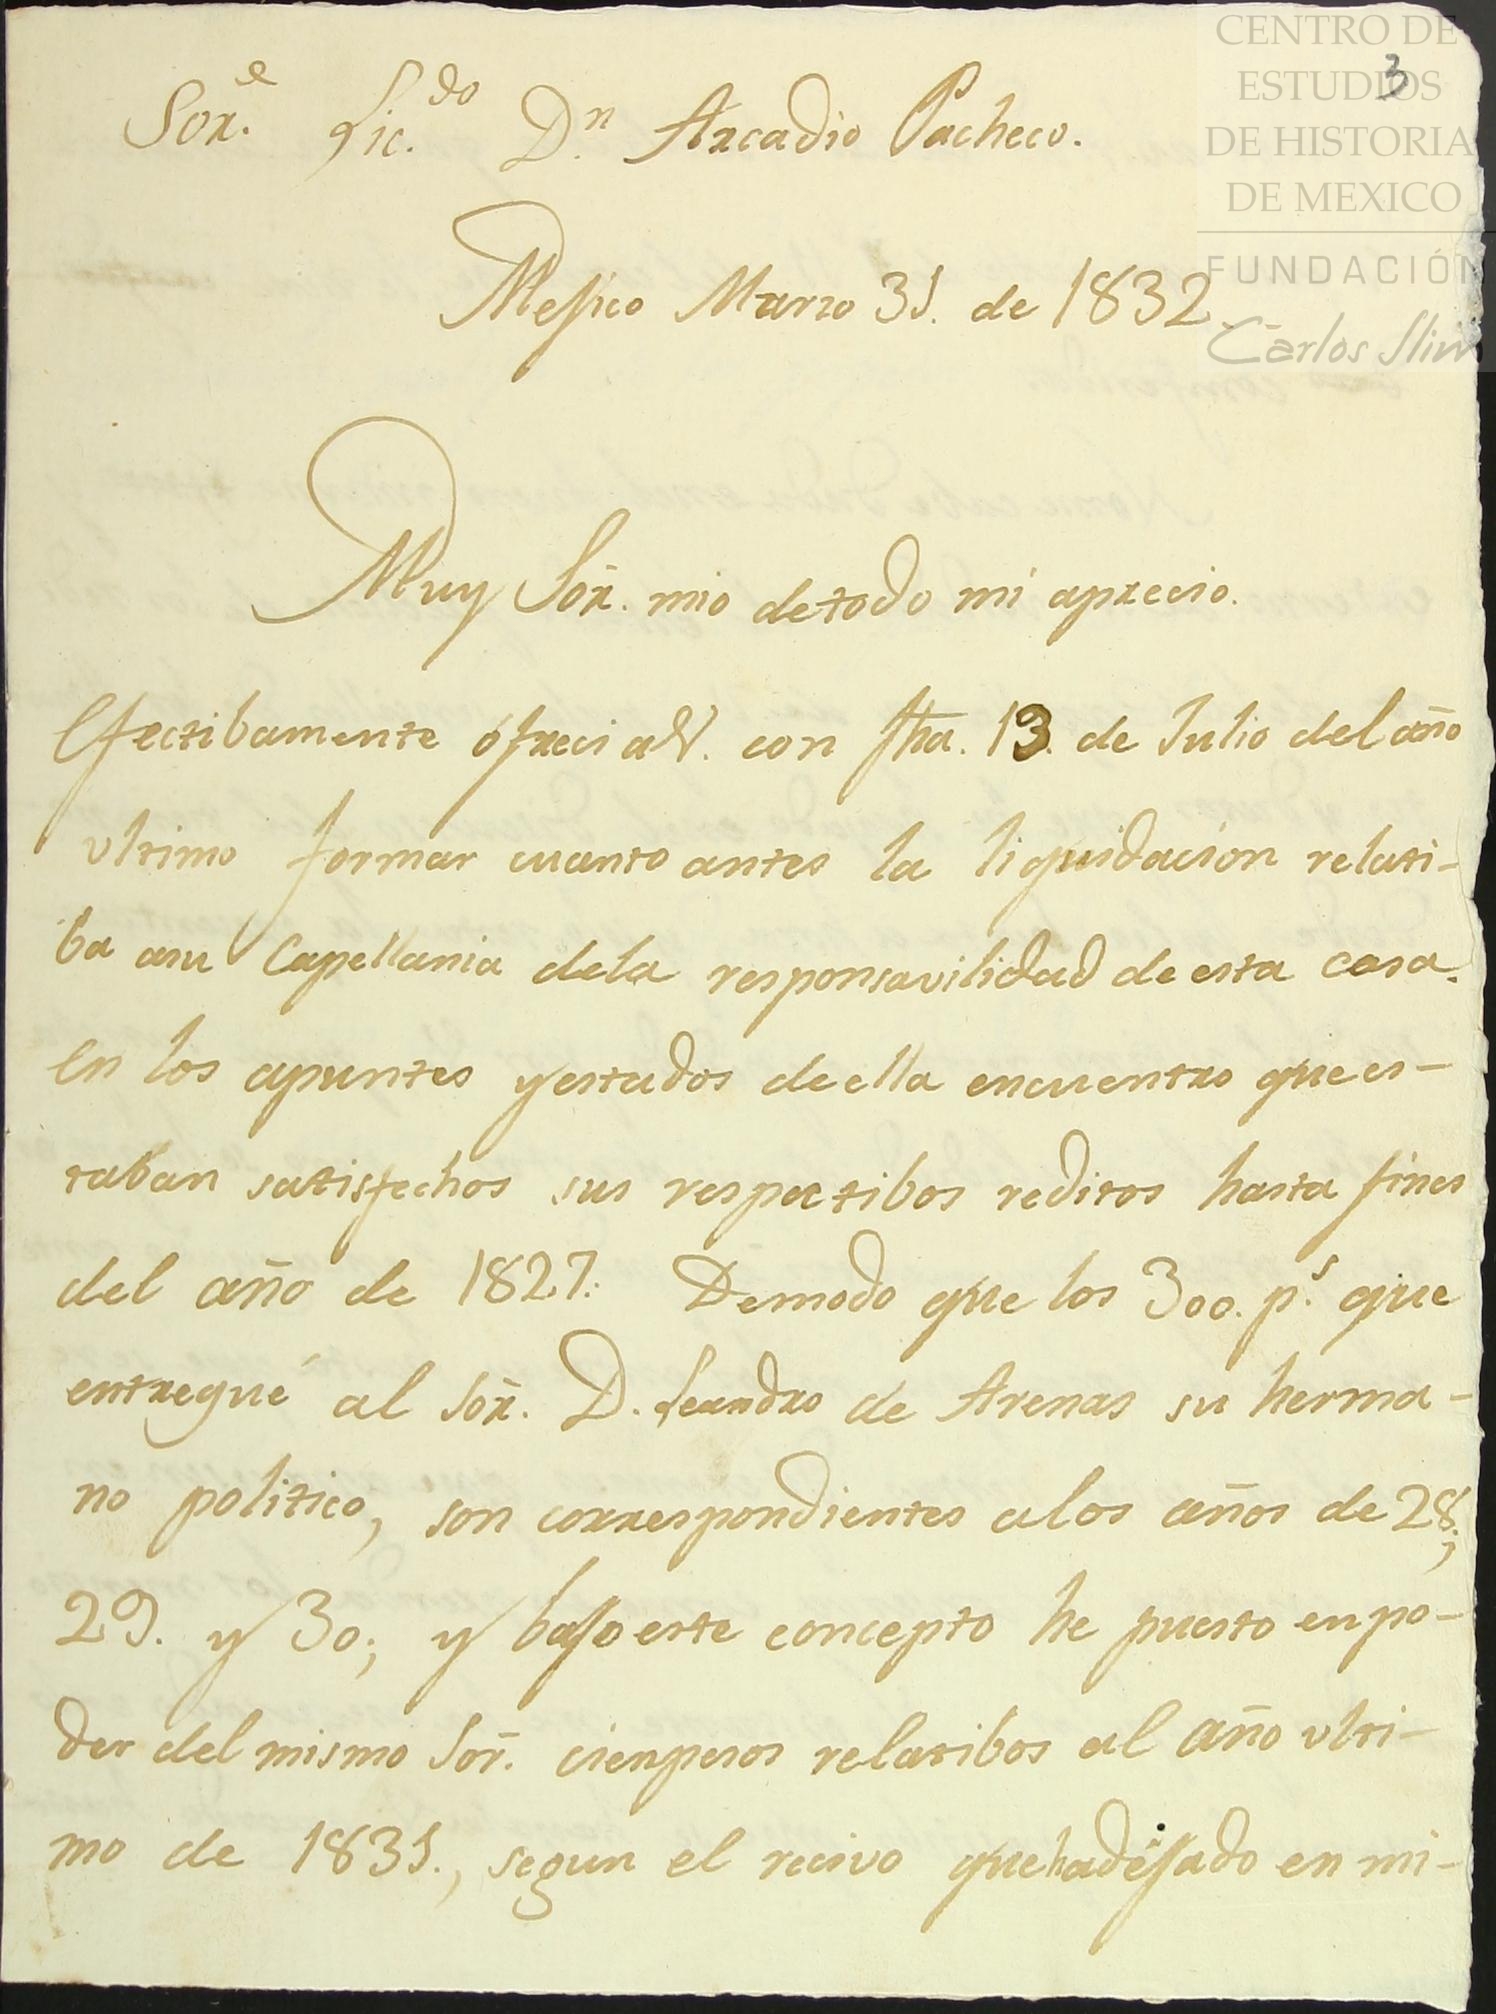 CENTRO DE
ESTUDIOS
DE HISTORIA
DE MEXICO
FUNDACIÓN
Carlos Slim
3
Sor.e Lic.do D.n Arcadio Pacheco.
Mejico Marzo 31. de 1832.
Muy Sor. mio detodo mi aprecio.
Efectibamente ófreci aV. con fha. 13. de Julio del año
ultimo formar cuanto antes la liquidacion relati-
ba asu Capellania dela responsavilidad de esta casa.
En los apuntes yestados deella encuentro que es-
taban satisfechos sus respectibos reditos hasta fines
del año de 1827. Demodo que los 300. p.s que
entregué al Sor. D. Leandro de Arenas su herma-
no politico, son correspondientes alos años de 28;
29. y 30; y bajo este concepto he puesto enpo-
der del mismo Sor. cienpesos relatibos al año ulti-
mo de 1831., segun el recivo quehadejado en mi-